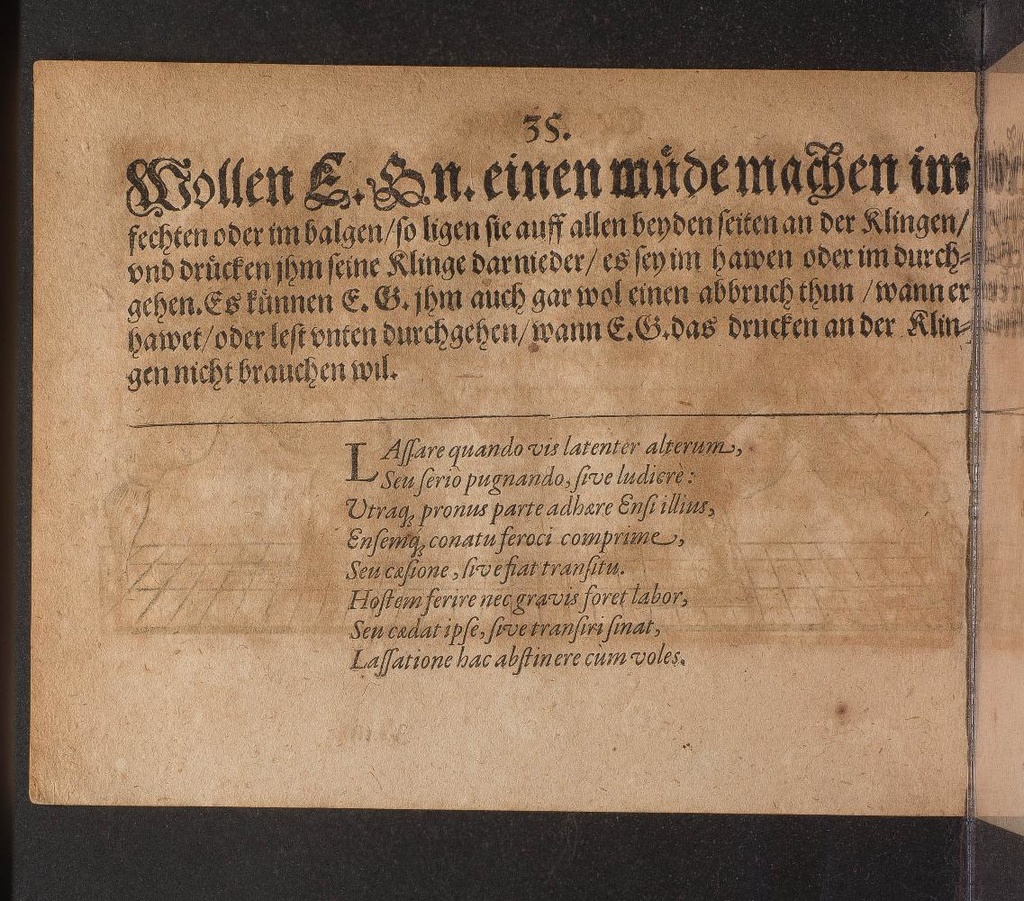 35.
Wollen E. Gn. einen müde machen im
fechten oder im balgen/so ligen sie auff allen beyden seiten an der Klingen/
vnd drücken jhm seine Klinge darnieder/ es sey im hawen oder im durch-
gehen. Es künnen E. G. jhm auch gar wol einen abbruch thun /wann er
hawet/oder lest vnten durchgehen/wann E. G. das drucken an der Klin-
gen nicht brauchen wil.
LAſſare quando vis latenter alterum,
Seu ſerio pugnando, ſive ludicrè:
Utraq; pronus parte adhære Enſi illius,
Enſemq; conatu feroci comprime,
Seu cæſione, ſive fiat tranſitu.
Hoſtem ferire nec gravis foret labor,
Seu cædat ipſe, ſive tranſiri ſinat,
Laſſatione hac abſtinere cùm voles.